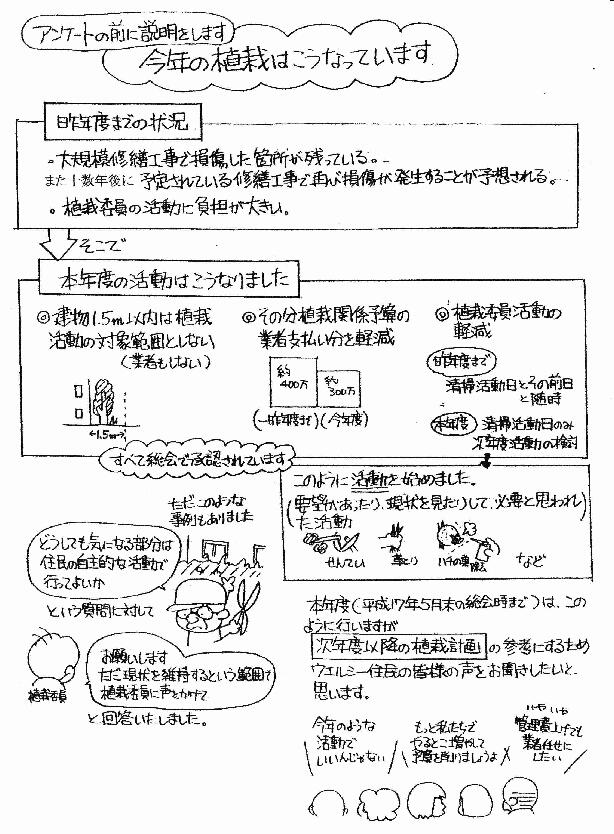 アンケートの前に説明をします
今年の植栽はこうなっています
昨年度までの状況
。大規模修繕工事で損傷した箇所が残っている。
また十数年後に予定されている修繕工事で再び損傷が発生することが予想される。
。植栽委員の活動に負担が大きい。
そこで
本年度の活動はこうなりました
◎建物1.5m以内は植栽
活動の対象範囲としない
(業者もしない)
←1.5m→
◎その分植栽関係予算の
業者支払い分を軽減
約
400万
約
300万
(一昨年度まで)(今年度)
◎植栽委員活動の
軽減
昨年度まで
清掃活動日とその前日
と随時
本年度 清掃活動日のみ
次年度活動の検討
すべて総会で承認されています
このように活動を始めました。
(要望があったり、現状を見たりして、必要と思われ
た活動)
せんてい 草とり ハチの巣 など
ただこのような
事例もありました
どうしても気になる部分は
住民の自主的な活動で
行ってよいか
という質問に対して
お願いします
ただ現状を維持するという範囲で
植栽委員に声をかけて
植栽委員
と回答いたしました。
本年度(平成17年5月末の総会時まで)は、この
ように行いますが
次年度以降の植栽計画 の参考にするため
ウエルミー住民の皆様の声をお聞きしたいと
思います。
今年のような
活動で
いいんじゃない
もっと私たちで
やるとこ増やして
予算を削りましょうよ
いやいや
管理費上げても
業者任せに
したい